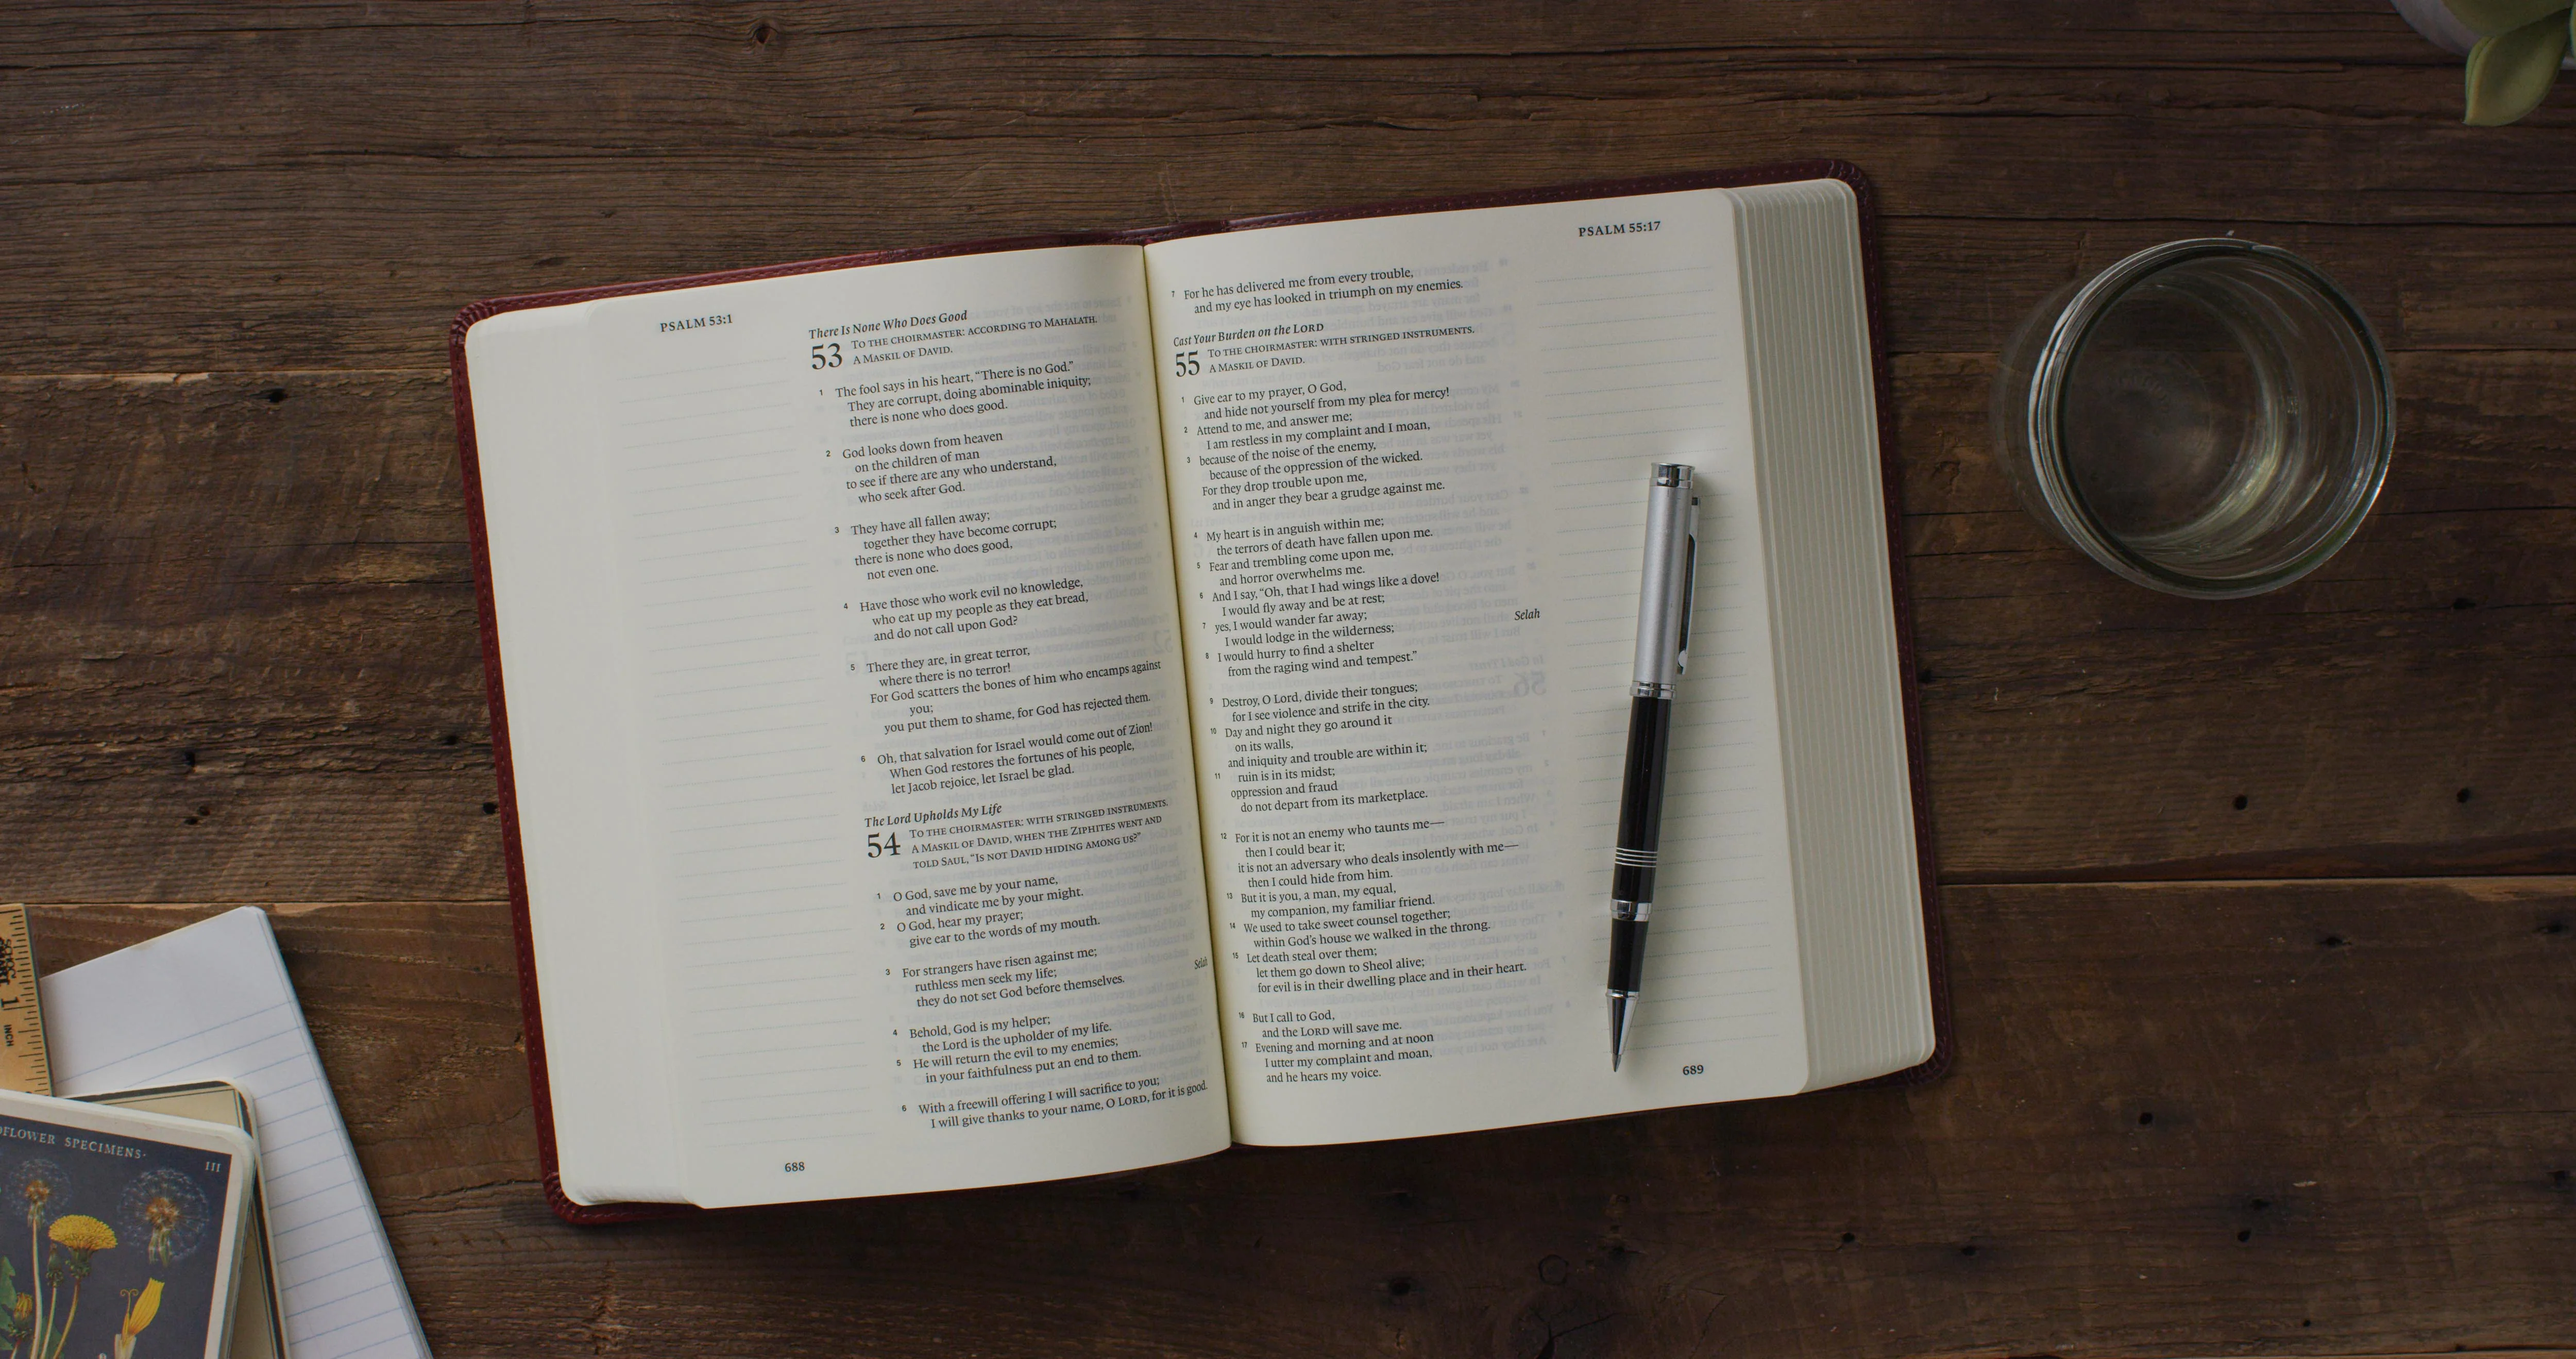 PSALM 53:1
There Is None Who Does Good
53 TO THE CHOIRMASTER: ACCORDING TO MAHALATH.
A MASKIL OF DAVID.
1 The fool says in his heart, “There is no God.”
They are corrupt, doing abominable iniquity;
there is none who does good.
2 God looks down from heaven
on the children of man
to see if there are any who understand,
who seek after God.
3 They have all fallen away;
together they have become corrupt;
there is none who does good,
not even one.
4 Have those who work evil no knowledge,
who eat up my people as they eat bread,
and do not call upon God?
5 There they are, in great terror,
where there is no terror!
For God scatters the bones of him who encamps against
you;
you put them to shame, for God has rejected them.
6 Oh, that salvation for Israel would come out of Zion!
When God restores the fortunes of his people,
let Jacob rejoice, let Israel be glad.
The Lord Upholds My Life
54 TO THE CHOIRMASTER: WITH STRINGED INSTRUMENTS.
A MASKIL OF DAVID, WHEN THE ZIPHITES WENT AND
TOLD SAUL, “IS NOT DAVID HIDING AMONG US?”
1 O God, save me by your name,
and vindicate me by your might.
2 O God, hear my prayer;
give ear to the words of my mouth.
3 For strangers have risen against me;
ruthless men seek my life;
they do not set God before themselves. Selah
4 Behold, God is my helper;
the Lord is the upholder of my life.
5 He will return the evil to my enemies;
in your faithfulness put an end to them.
6 With a freewill offering I will sacrifice to you;
I will give thanks to your name, O LORD, for it is good.
688
PSALM 55:17
7 For he has delivered me from every trouble,
and my eye has looked in triumph on my enemies.
Cast Your Burden on the LORD
55 TO THE CHOIRMASTER: WITH STRINGED INSTRUMENTS.
A MASKIL OF DAVID.
1 Give ear to my prayer, O God,
and hide not yourself from my plea for mercy!
2 Attend to me, and answer me;
I am restless in my complaint and I moan,
3 because of the noise of the enemy,
because of the oppression of the wicked.
For they drop trouble upon me,
and in anger they bear a grudge against me.
4 My heart is in anguish within me;
the terrors of death have fallen upon me.
5 Fear and trembling come upon me,
and horror overwhelms me.
6 And I say, “Oh, that I had wings like a dove!
I would fly away and be at rest;
7 yes, I would wander far away;
I would lodge in the wilderness; Selah
8 I would hurry to find a shelter
from the raging wind and tempest.”
9 Destroy, O Lord, divide their tongues;
for I see violence and strife in the city.
10 Day and night they go around it
on its walls,
and iniquity and trouble are within it;
11 ruin is in its midst;
oppression and fraud
do not depart from its marketplace.
12 For it is not an enemy who taunts me—
then I could bear it;
it is not an adversary who deals insolently with me—
then I could hide from him.
13 But it is you, a man, my equal,
my companion, my familiar friend.
14 We used to take sweet counsel together;
within God’s house we walked in the throng.
15 Let death steal over them;
let them go down to Sheol alive;
for evil is in their dwelling place and in their heart.
16 But I call to God,
and the LORD will save me.
17 Evening and morning and at noon
I utter my complaint and moan,
and he hears my voice.
689
1
INCH
SPECIMENS·
III